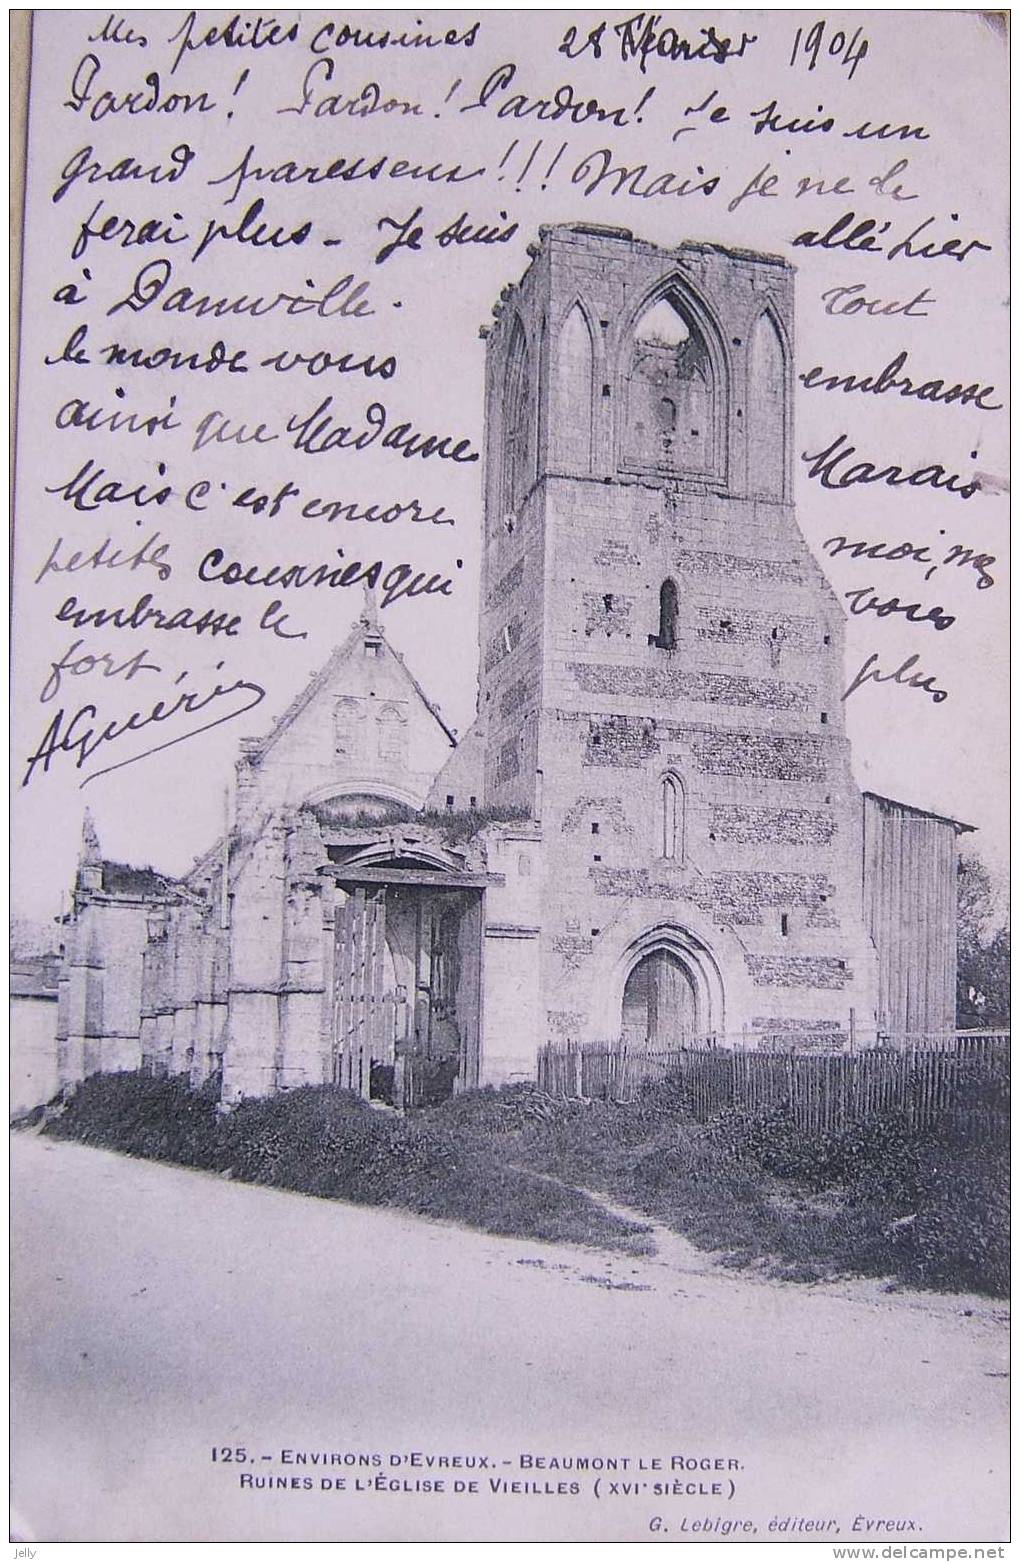 Mes petites cousines 28 Février 1904
Pardon! Pardon! Pardon! Je suis un
grand paresseux!!! Mais je ne le
ferai plus - Je suis allé hier
à Danville. Tout
le monde vous embrasse
ainsi que Madame Marais
Mais c'est encore moi, mes
petites cousines qui vous
embrasse le plus
fort,
AGuérin
125. - ENVIRONS D'EVREUX. - BEAUMONT LE ROGER.
RUINES DE L'ÉGLISE DE VIEILLES (XVIe SIÈCLE)
G. Lebigre, éditeur, Évreux.
jelly www.delcampe.net